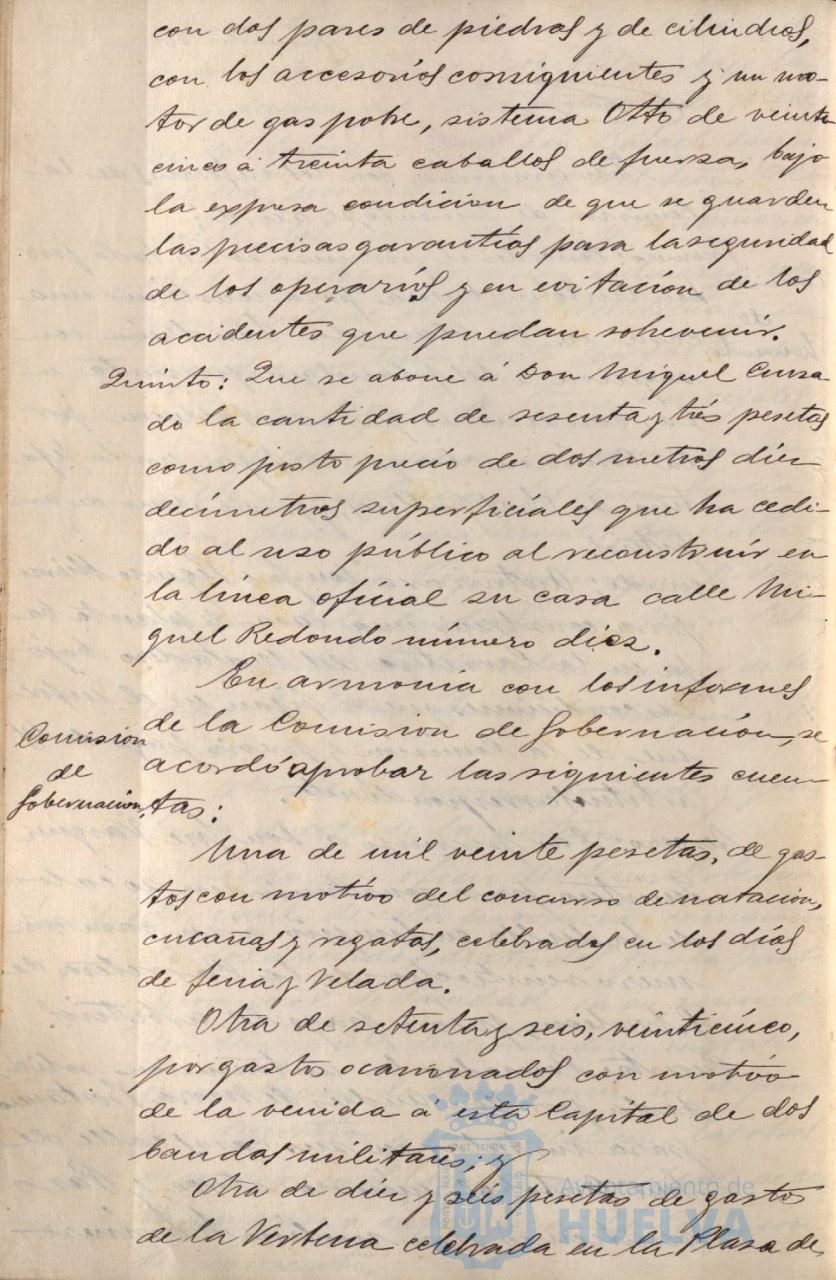 con dos pares de piedras y de cilindros,
con los accesorios consiguientes y un mo-
tor de gas pobre, sistema Otto de veinte
cinco á treinta caballos de fuerza, bajo
la expresa condicion de que se guarden
las precisas garantías para la seguridad
de los operarios y en evitación de los
accidentes que puedan sobrevenir.
Quinto: Que se abone á Don Miguel Cursa-
do la cantidad de sesenta y trés pesetas
como justo precio de dos metros diez
decímetros superficiales que ha cedi-
do al uso público al reconstruir en
la línea oficial su casa calle Mi-
guel Redondo número diez.
En armonía con los informes
Comision
de
Gobernacion
de la Comision de Gobernación, se
acordó aprobar las siguientes cuen-
tas:
Una de mil veinte pesetas, de gas-
tos con motivo del concurso de natacion,
cucañas y regatas, celebrados en los días
de feria y Velada.
Otra de setenta y seis, veinticinco,
por gastos ocasionados con motivo
de la venida á esta Capital de dos
bandas militares; y
Otra de diez y seis pesetas de gastos
de la Verbena celebrada en la Plaza de
Ayuntamiento de
HUELVA